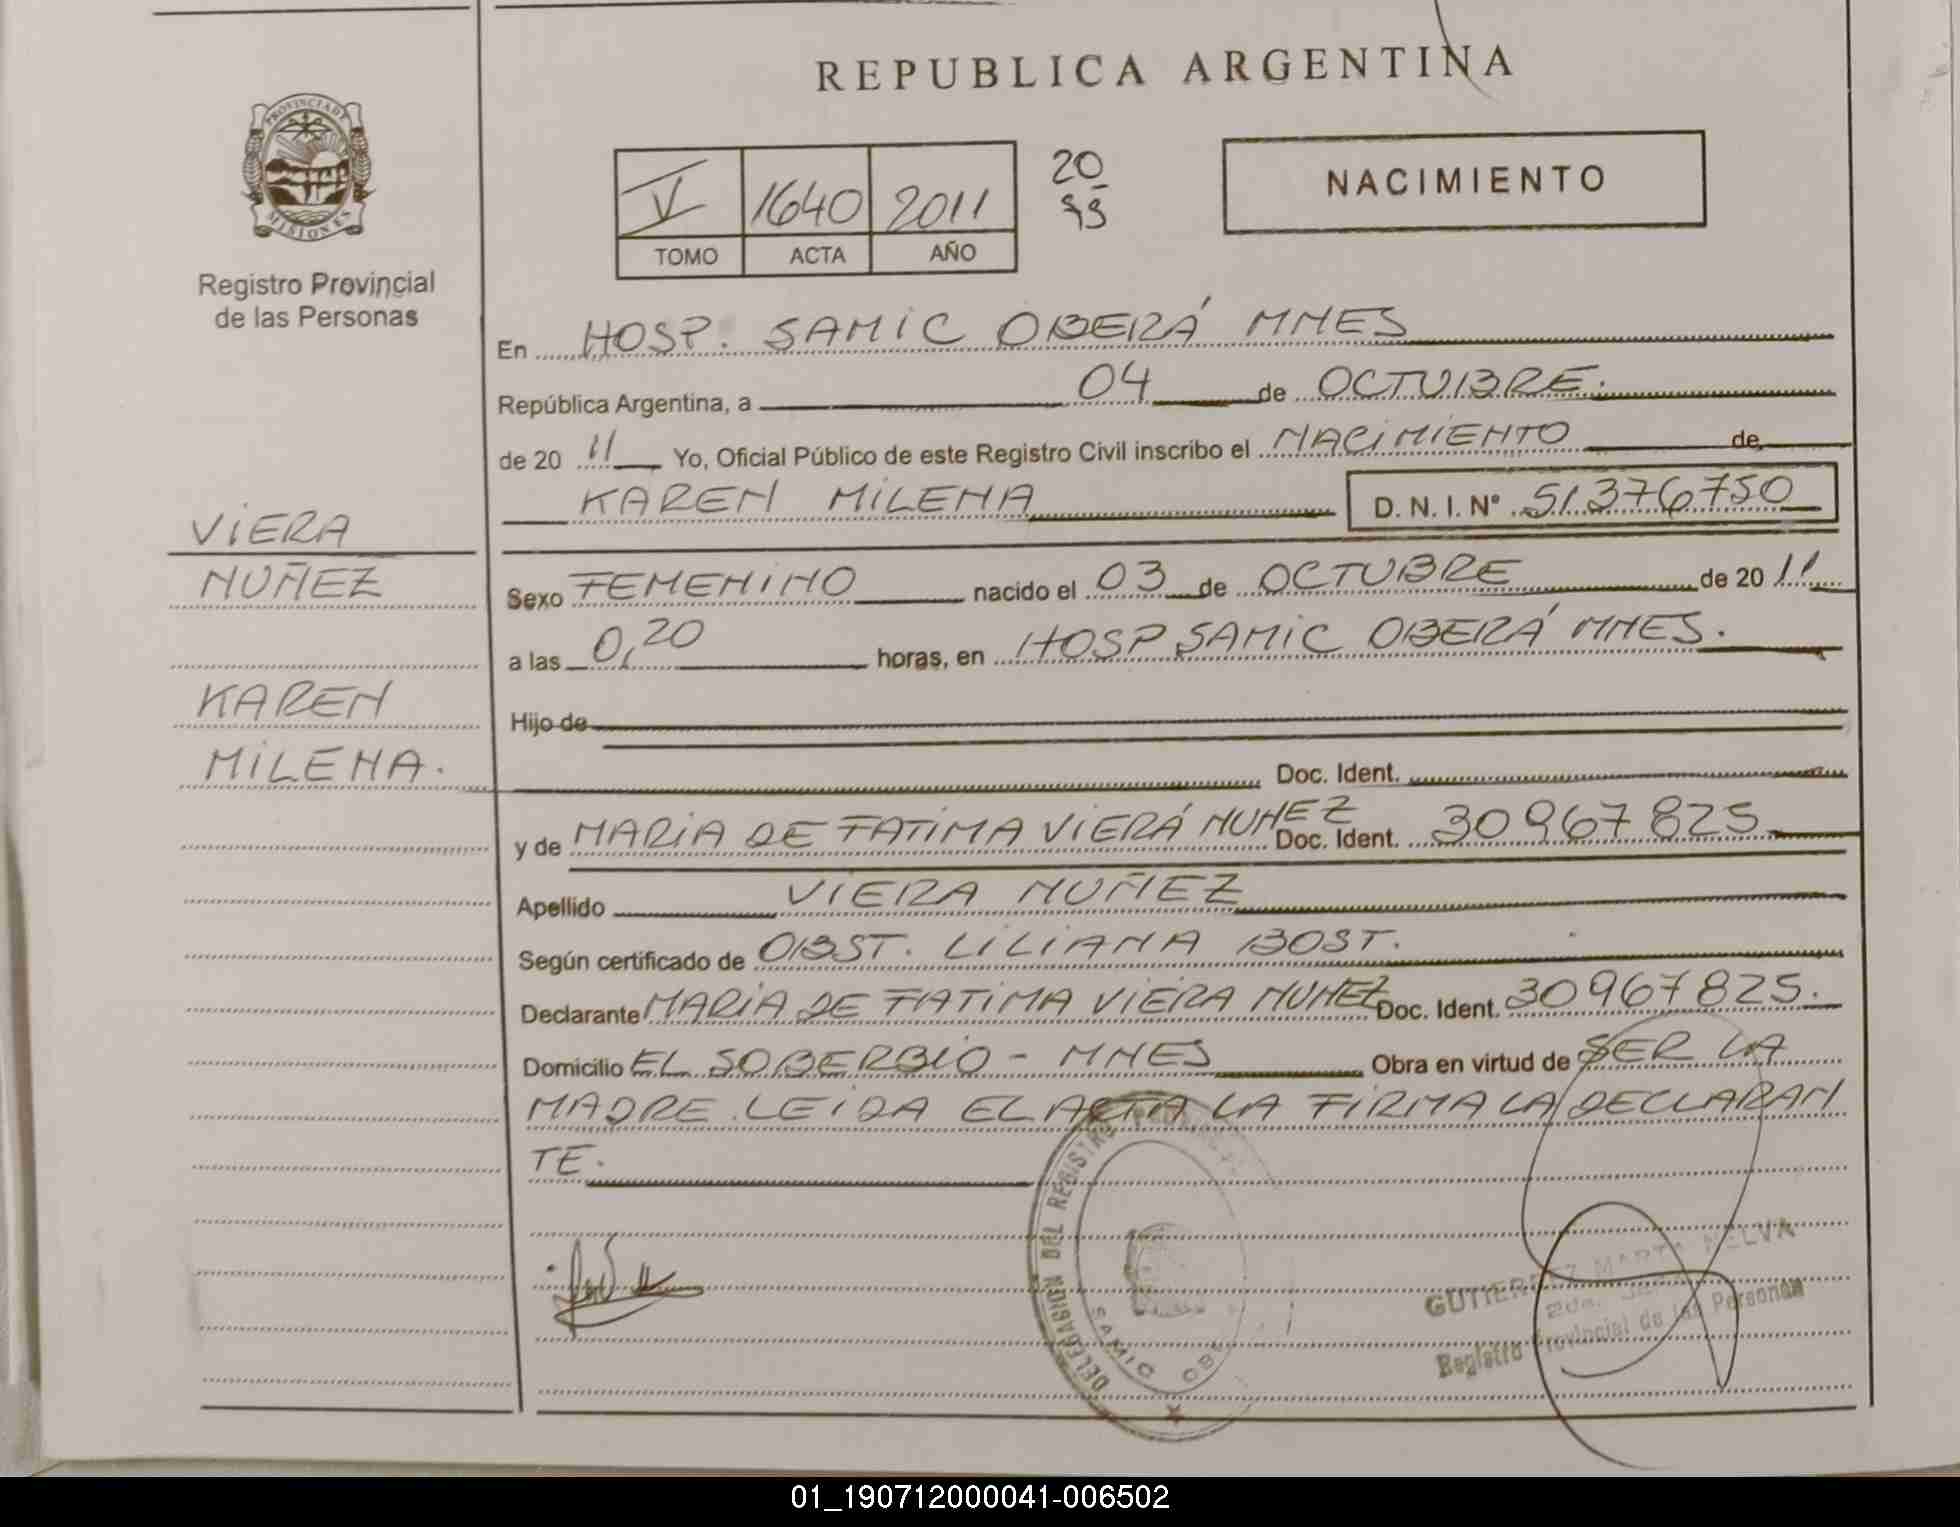 REPUBLICA ARGENTINA
PROVINCIA DE
MISIONES
Registro Provincial
de las Personas
V 1640 2011
TOMO ACTA AÑO
20
NACIMIENTO
En HOSP. SAMIC OBERÁ MNES
República Argentina, a 04 de OCTUBRE.
de 20 11 Yo, Oficial Público de este Registro Civil inscribo el NACIMIENTO de
KAREN MILENA D. N. I. Nº 51376750
VIERA
NUÑEZ
KAREN
MILENA.
Sexo FEMENINO nacido el 03 de OCTUBRE de 20 11
a las 0,20 horas, en HOSP SAMIC OBERÁ MNES.
Hijo de
Doc. Ident.
y de MARIA DE FATIMA VIERÁ NUNEZ Doc. Ident. 30967825
Apellido VIERA NUÑEZ
Según certificado de OBST. LILIANA BOST.
Declarante MARIA DE FATIMA VIERA NUNEZ Doc. Ident. 30967825.
Domicilio EL SOBERBIO - MNES Obra en virtud de SER LA
MADRE. LEIDA EL ACTA LA FIRMA LA DECLARAN
TE.
DELEGACION DEL REGISTRO
SAMIC
GUTIERREZ MARTA NELVA
Registro Provincial de las Personas
01_190712000041-006502